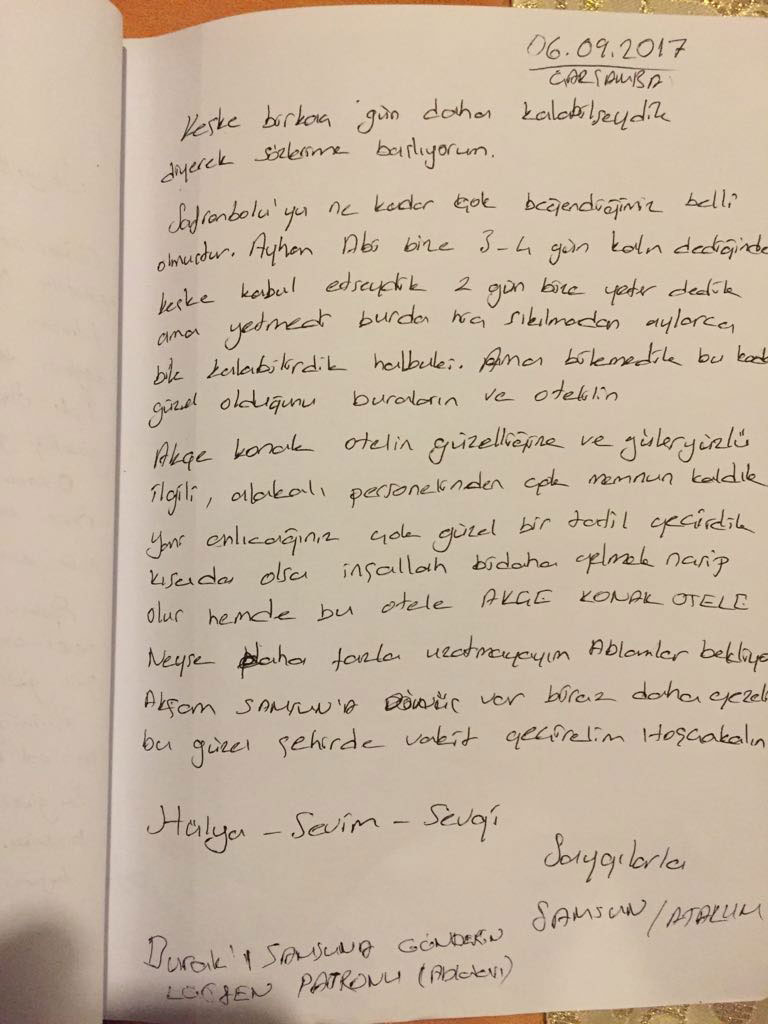 06.09.2017
ÇARŞAMBA
Keşke birkaç gün daha kalabilseydik
diyerek sözlerime başlıyorum.
Safranbolu'yu ne kadar çok beğendiğimiz belli
olmuştur. Ayhan Abi bize 3-4 gün kalın dediğinde
keşke kabul etseydik 2 gün bize yeter dedik
ama yetmedi burda hiç sıkılmadan aylarca
bile kalabilirdik halbuki. Ama bilemedik bu kada
güzel olduğunu buraların ve otelin
Akçe konak otelin güzelliğine ve güleryüzlü
ilgili, alakalı personelinden çok memnun kaldık
Yani anlıcağınız çok güzel bir tatil geçirdik
kısada olsa inşallah bidaha gelmek nasip
olur hemde bu otele AKÇE KONAK OTELE
Neyse daha fazla uzatmayayım Ablamlar bekliyo
Akşam SAMSUN'A DÖNÜŞ var biraz daha gezel
bu güzel şehirde vakit geçirelim Hoşçakalın
Hülya - Sevim - Sevgi
Saygılarla
SAMSUN / ATAKUM
Burak'ı SAMSUNA GÖNDERİN
PATRONU (Ablaları)